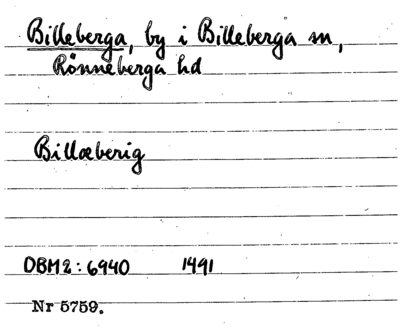 Billeberga, by i Billeberga sn,
Rönneberga hd
Billæberig
DBM2:6940 1491
Nr 5759.